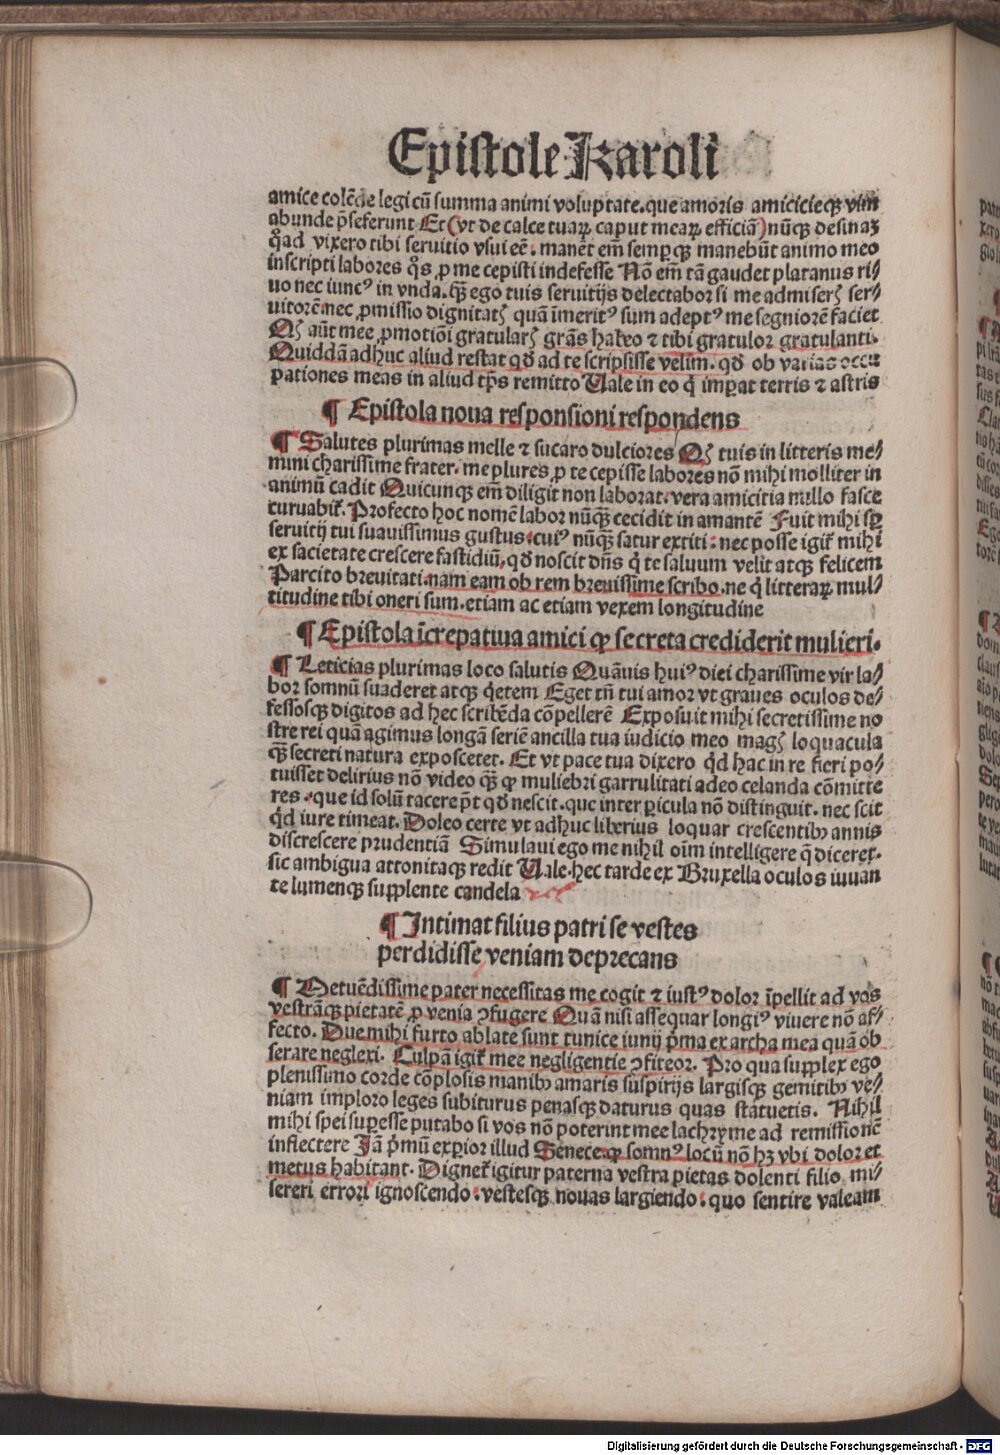 Epistole Karoli
amice colēde legi cū summa animi voluptate. que amoris amicicieqʒ vim
abunde p̄seferunt Et (vt de calce tuaꝝ caput meaꝝ efficiā) nūqʒ desinaʒ
qͦad vixero tibi seruitio vsui eē. manēt em̄ semꝑqʒ manebūt animo meo
inscripti labores qͦs ꝓ me cepisti indefesse Nō em̄ tā gaudet platanus ri⸗
uo nec iuncꝰ in vnda. qʒ̄ ego tuis seruitijs delectabor si me admiserꝭ ser⸗
uitorē nec ꝓmissio dignitatꝭ quā īmeritꝰ sum adeptꝰ me segniorē faciet
Qꝭ aūt mee ꝓmotiōi gratularꝭ grās habeo ⁊ tibi gratulor gratulanti.
Quiddā adhuc aliud restat qd̄ ad te scripsisse velim. qd̄ ob varias occu
pationes meas in aliud tp̄s remitto Uale in eo q̇ imꝑat terris ⁊ astris
¶ Epistola noua responsioni respondens
¶ Salutes plurimas melle ⁊ sucaro dulciores Qꝭ tuis in litteris me⸗
mini charissime frater. me plures ꝓ te cepisse labores nō mihi molliter in
animū cadit Quicunqʒ em̄ diligit non laborat. vera amicitia nullo fasce
curuabit̄. Profecto hoc nomē labor nūqʒ̄ cecidit in amantē Fuit mihi sꝑ
seruitij tui suauissimus gustus. cuiꝰ nūqʒ̄ satur extiti: nec posse igit̄ mihi
ex sacietate crescere fastidiū, qd̄ noscit dn̄s q̇ te saluum velit atqʒ felicem
Parcito breuitati. nam eam ob rem breuissime scribo. ne q̇ litteraꝝ mul⸗
titudine tibi oneri sum. etiam ac etiam vexem longitudine
¶ Epistola īcrepatiua amici ꝙ secreta crediderit mulieri.
¶ Leticias plurimas loco salutis Quāuis huiꝰ diei charissime vir la⸗
bor somnū suaderet atqʒ q̇etem Eget tn̄ tui amor vt graues oculos de⸗
fessosqʒ digitos ad hec scribēda cōpellerē Exposuit mihi secretissime no
stre rei quā agimus longā seriē ancilla tua iudicio meo magꝭ loquacula
qʒ̄ secreti natura exposcetet. Et vt pace tua dixero qͥd hac in re fieri po⸗
tuisset delirius nō video qʒ̄ ꝙ muliebri garrulitati adeo celanda cōmitte
res. que id solū tacere pōt qd̄ nescit. que inter ꝑicula nō distinguit. nec scit
qͥd iure timeat. Doleo certe vt adhuc liberius loquar crescentibꝰ annis
discrescere prudentiā Simulaui ego me nihil oīm intelligere q̄ diceret.
sic ambigua attonitaqʒ redit Uale. hec tarde ex Bruxella oculos iuuan
te lumenqʒ supplente candela
¶ Intimat filius patri se vestes
perdidisse veniam deprecans
¶ Metuēdissime pater necessitas me cogit ⁊ iustꝰ dolor īpellit ad vos
vestrāqʒ pietatē ꝓ venia ↄfugere Quā nisi assequar longiꝰ viuere nō af⸗
fecto. Due mihi furto ablate sunt tunice iunij p̄ma ex archa mea quā ob
serare neglexi. Culpā igit̄ mee negligentie ↄfiteor. Pro qua supplex ego
plenissimo corde cōplosis manibꝰ amaris suspirijs largisqʒ gemitibꝰ ve⸗
niam imploro leges subiturus penasqʒ daturus quas statuetis. Nihil
mihi spei suꝑesse putabo si vos nō poterint mee lachryme ad remissionē
inflectere Jā pͥmū exꝑior illud Senece. ꝙ somnꝰ locū nō hʒ vbi dolor et
metus habitant. Dignet̄ igitur paterna vestra pietas dolenti filio mi⸗
sereri errori ignoscendo: vestesqʒ nouas largiendo: quo sentire valeam
Digitalisierung gefördert durch die Deutsche Forschungsgemeinschaft - DFG